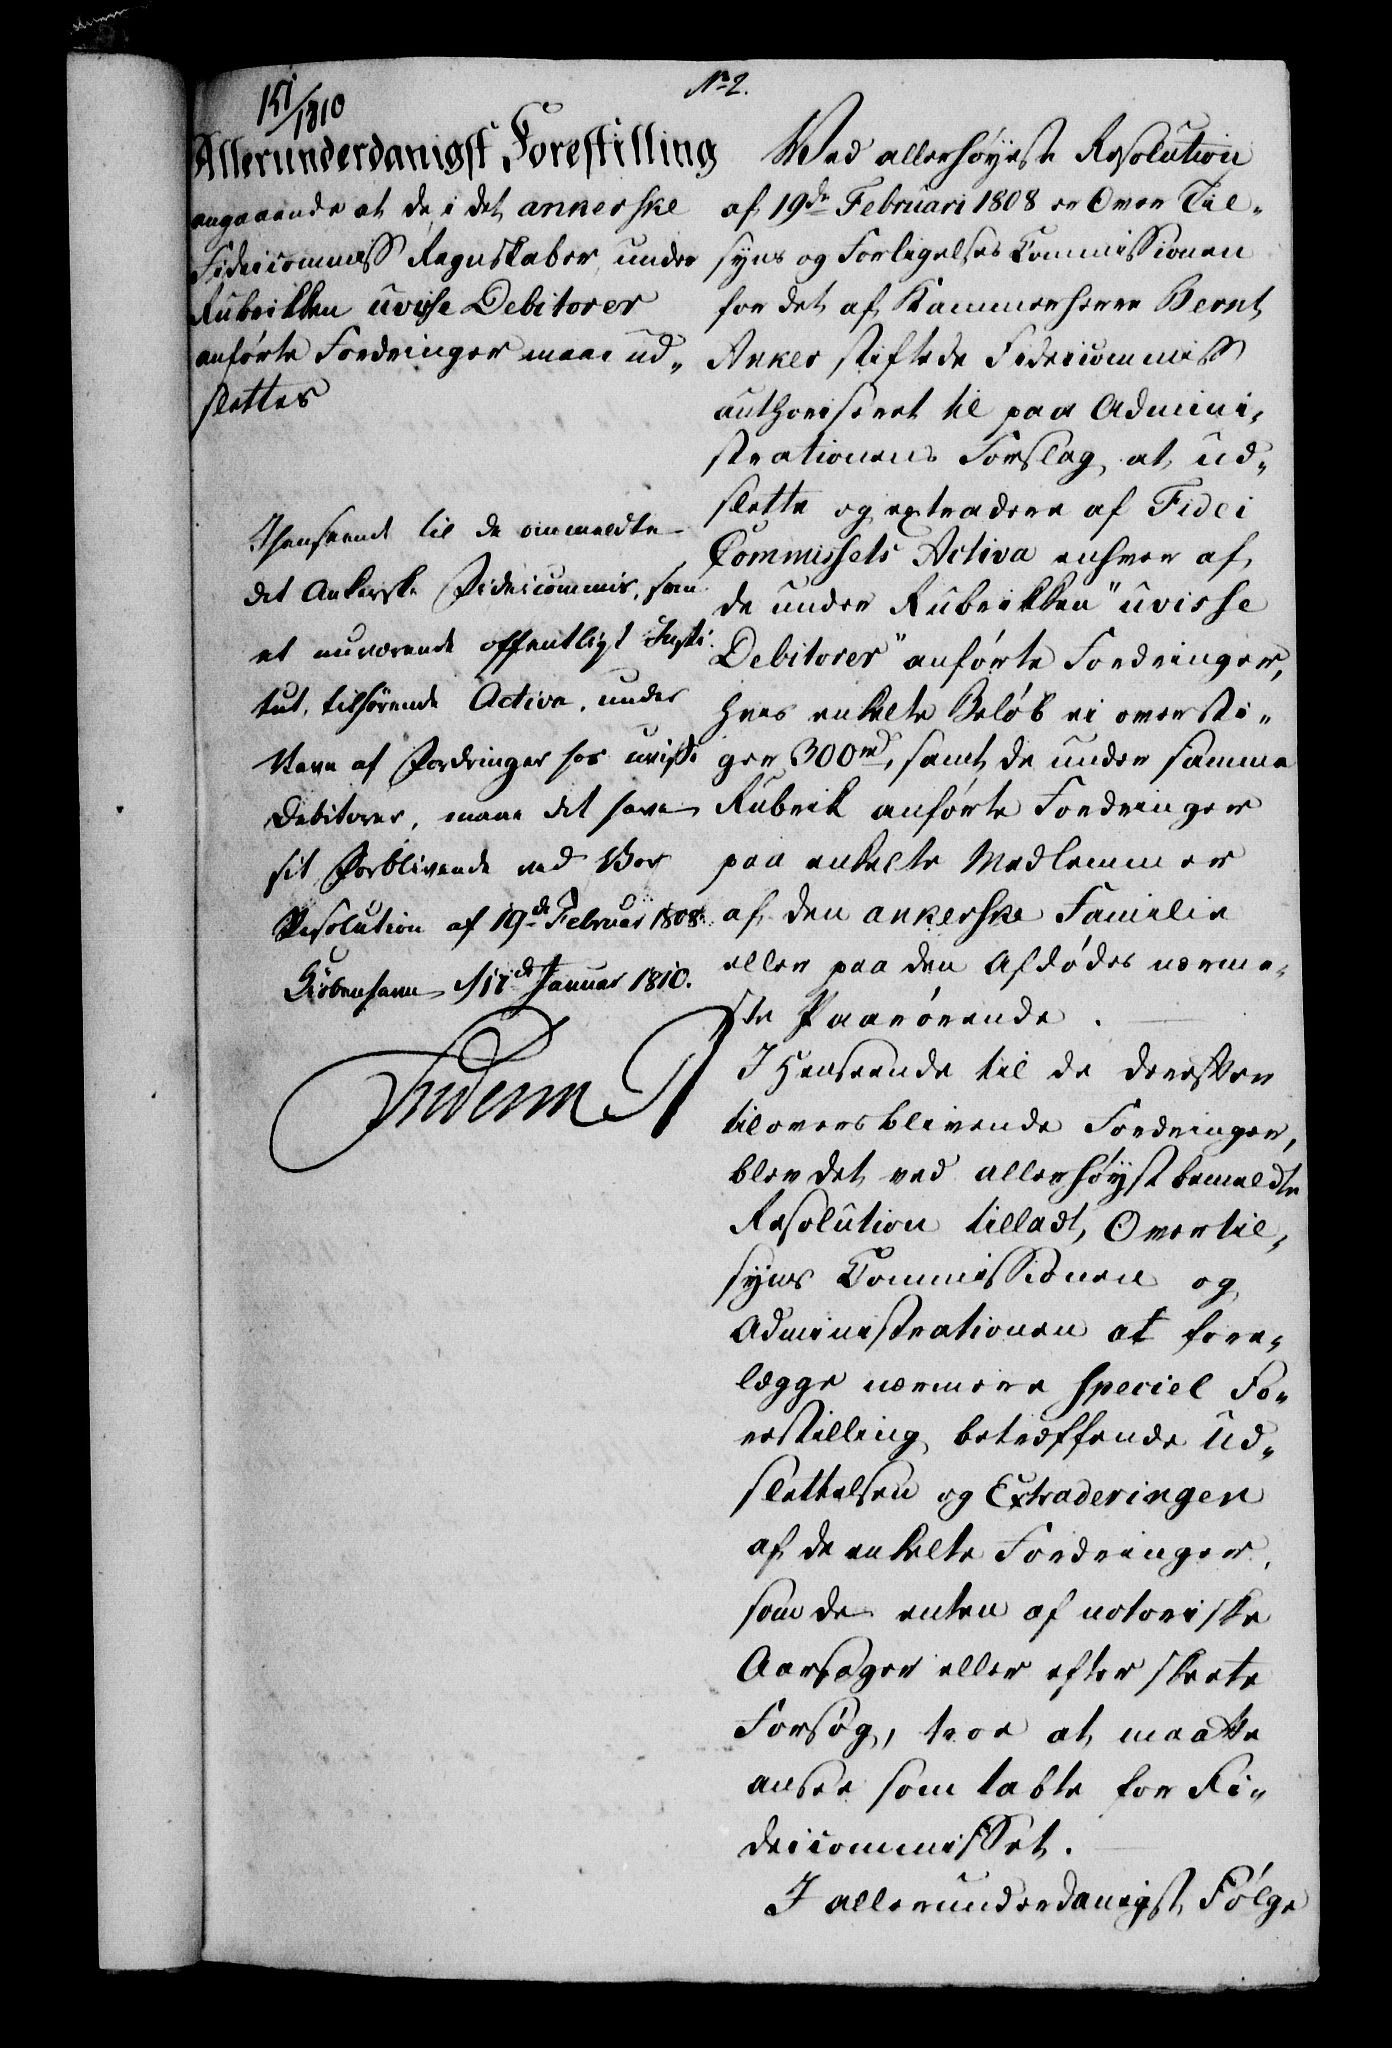 No 2.
151/1810
Allerunderdanigst Forestilling
angaaende at de i det ankerske
Fideicommiss Regnskaber under
Rubrikken uvisse Debitorer
anførte Fordringer maae ud-
slettes
I Henseende til de ommeldte
det Ankerske Fideicommis, som
et nuværende offentligt Insti-
tut, tilhørende Activa, under
Navn af Fordringer hos uvisse
Debitorer, maae det have
sit Forblivende ved Vor
Resolution af 19de Februar 1808.
Kiøbenhavn d 17de Januar 1810.
Frederik R
Ved allerhøyeste Resolution
af 19de Februari 1808 er Over Til-
syns og Forligelses Commissionen
for det af Kammerherre Bernt
Anker stiftede Fideicommiss
authoriseret til paa Admini-
strationens Forslag at ud-
slette og extradere af Fidei
Commissets Activa enhver af
de under Rubrikken "uvisse
Debitorer" anførte Fordringer,
hvis enkelte Beløb ei oversti-
ger 300rd, samt de under samme
Rubrik anførte Fordringer
paa enkelte Medlemmer
af den ankerske Familie
eller paa den Afdødes nærme-
ste Paarørende.
I Henseende til de derefter
tiloversblivende Fordringer,
blev det ved allerhøystbemeldte
Resolution tilladt, Overtil-
syns Commissionen og
Administrationen at fore-
lægge nærmere speciel Fo-
restilling betræffende Ud-
slettelsen og Extraderingen
af de enkelte Fordringer,
som de enten af notoriske
Aarsager eller efter skeete
Forsøg, troe at maatte
ansee som tabte for Fi-
deicommisset.
I allerunderdanigst Følge